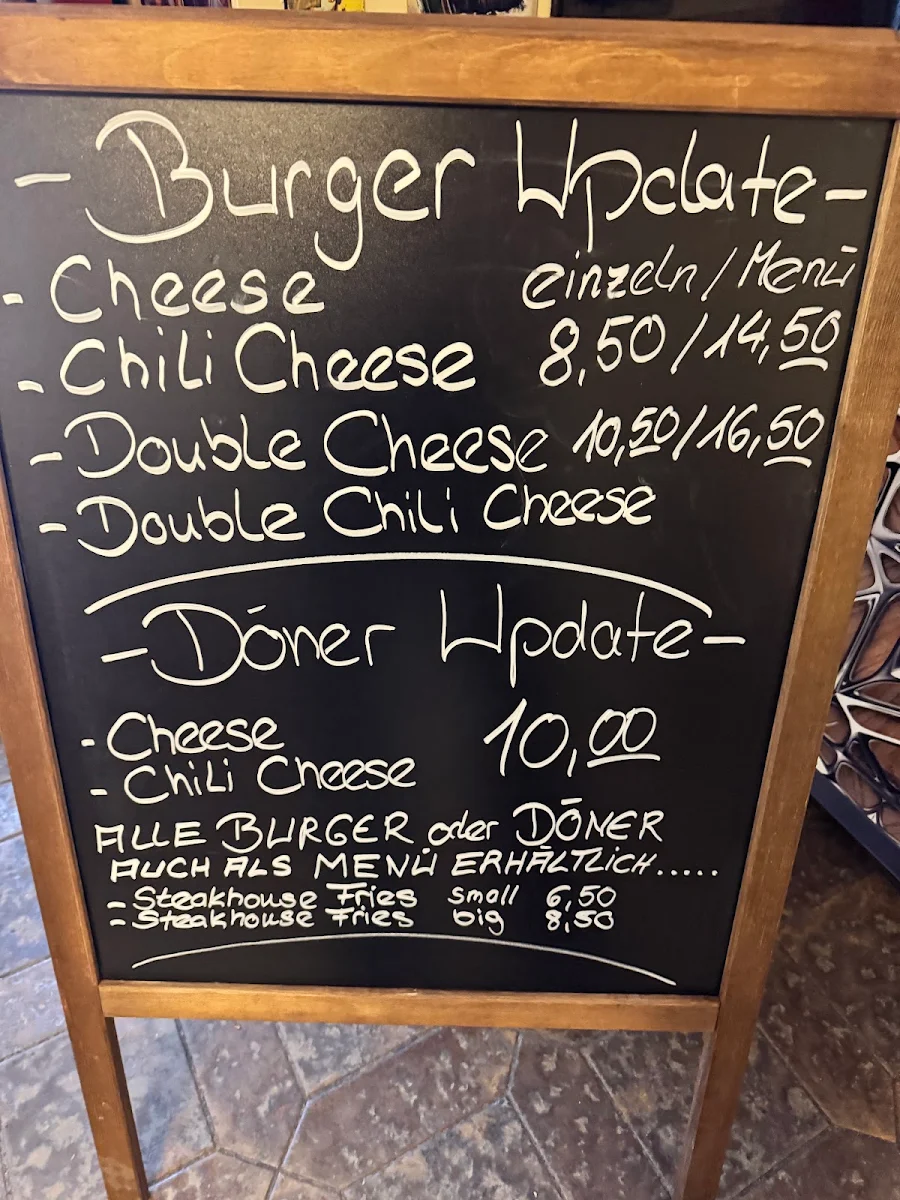 - Burger Update -
- Cheese einzeln / Menü
- Chili Cheese 8,50 / 14,50
- Double Cheese 10,50 / 16,50
- Double Chili Cheese
- Döner Update -
- Cheese 10,00
- Chili Cheese
ALLE BURGER oder DÖNER
AUCH ALS MENÜ ERHÄLTLICH.....
- Steakhouse Fries small 6,50
- Steakhouse Fries big 8,50